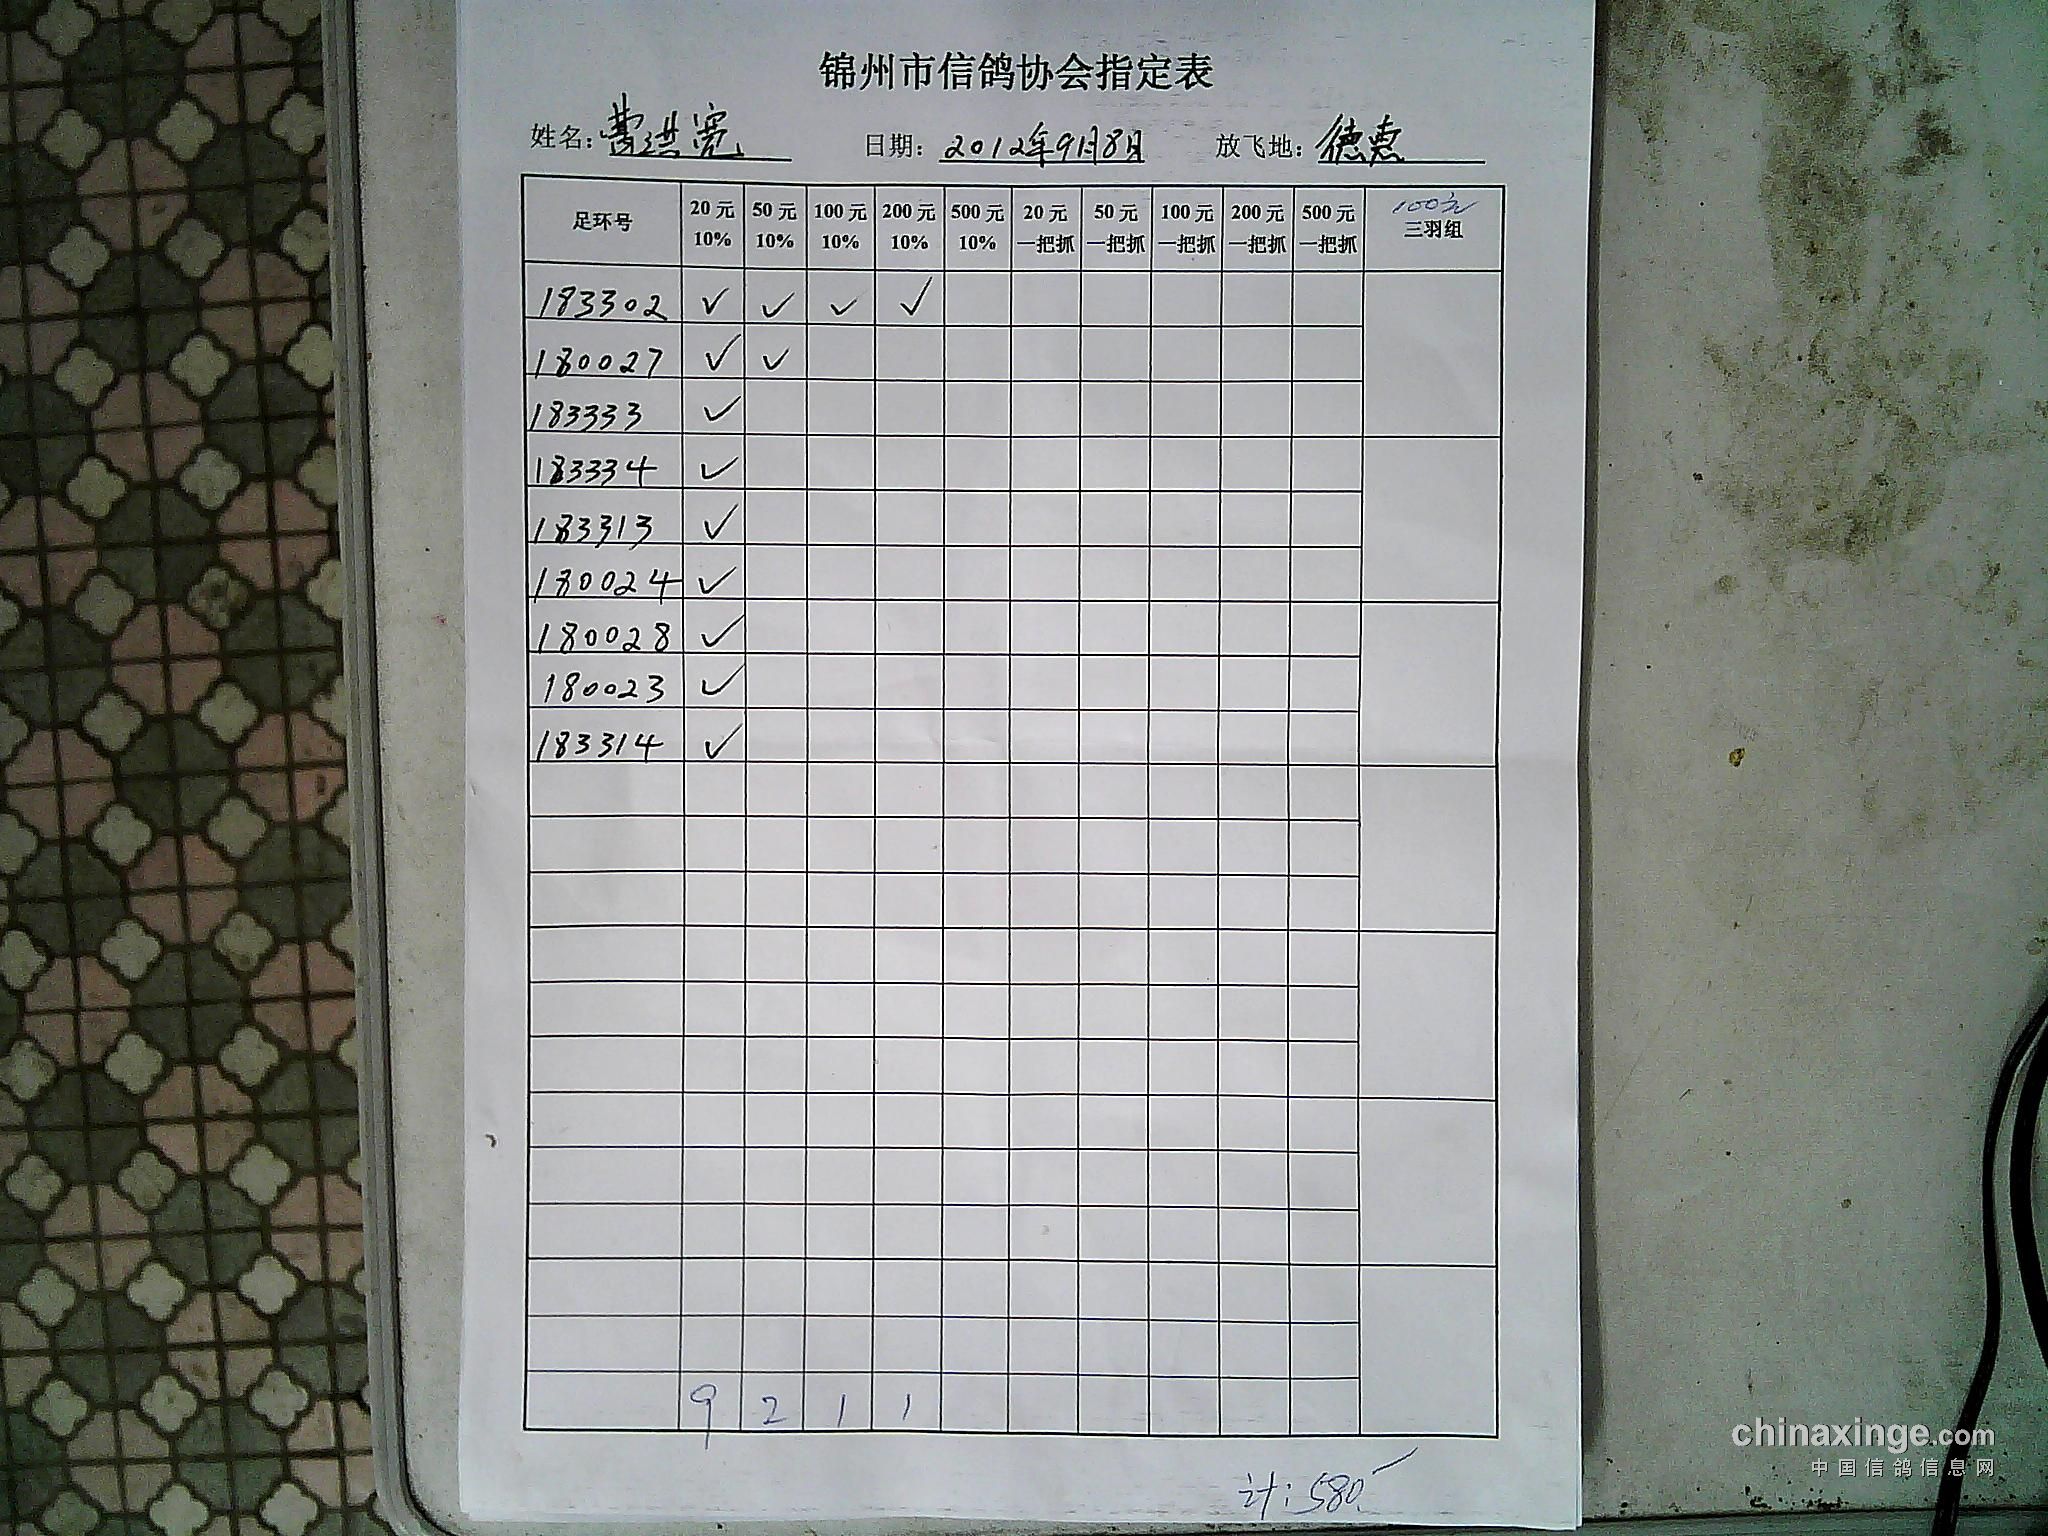 锦州市信鸽协会指定表
姓名：曹洪宽 日期：2012年9月8日 放飞地：德惠
足环号 20元 10% 50元 10% 100元 10% 200元 10% 500元 10% 20元 一把抓 50元 一把抓 100元 一把抓 200元 一把抓 500元 一把抓 100元 三羽组
183302 ✓ ✓ ✓ ✓
180027 ✓ ✓
183333 ✓
183334 ✓
183313 ✓
180024 ✓
180028 ✓
180023 ✓
183314 ✓
9 2 1 1
计：580
chinaxinge.com
中国信鸽信息网